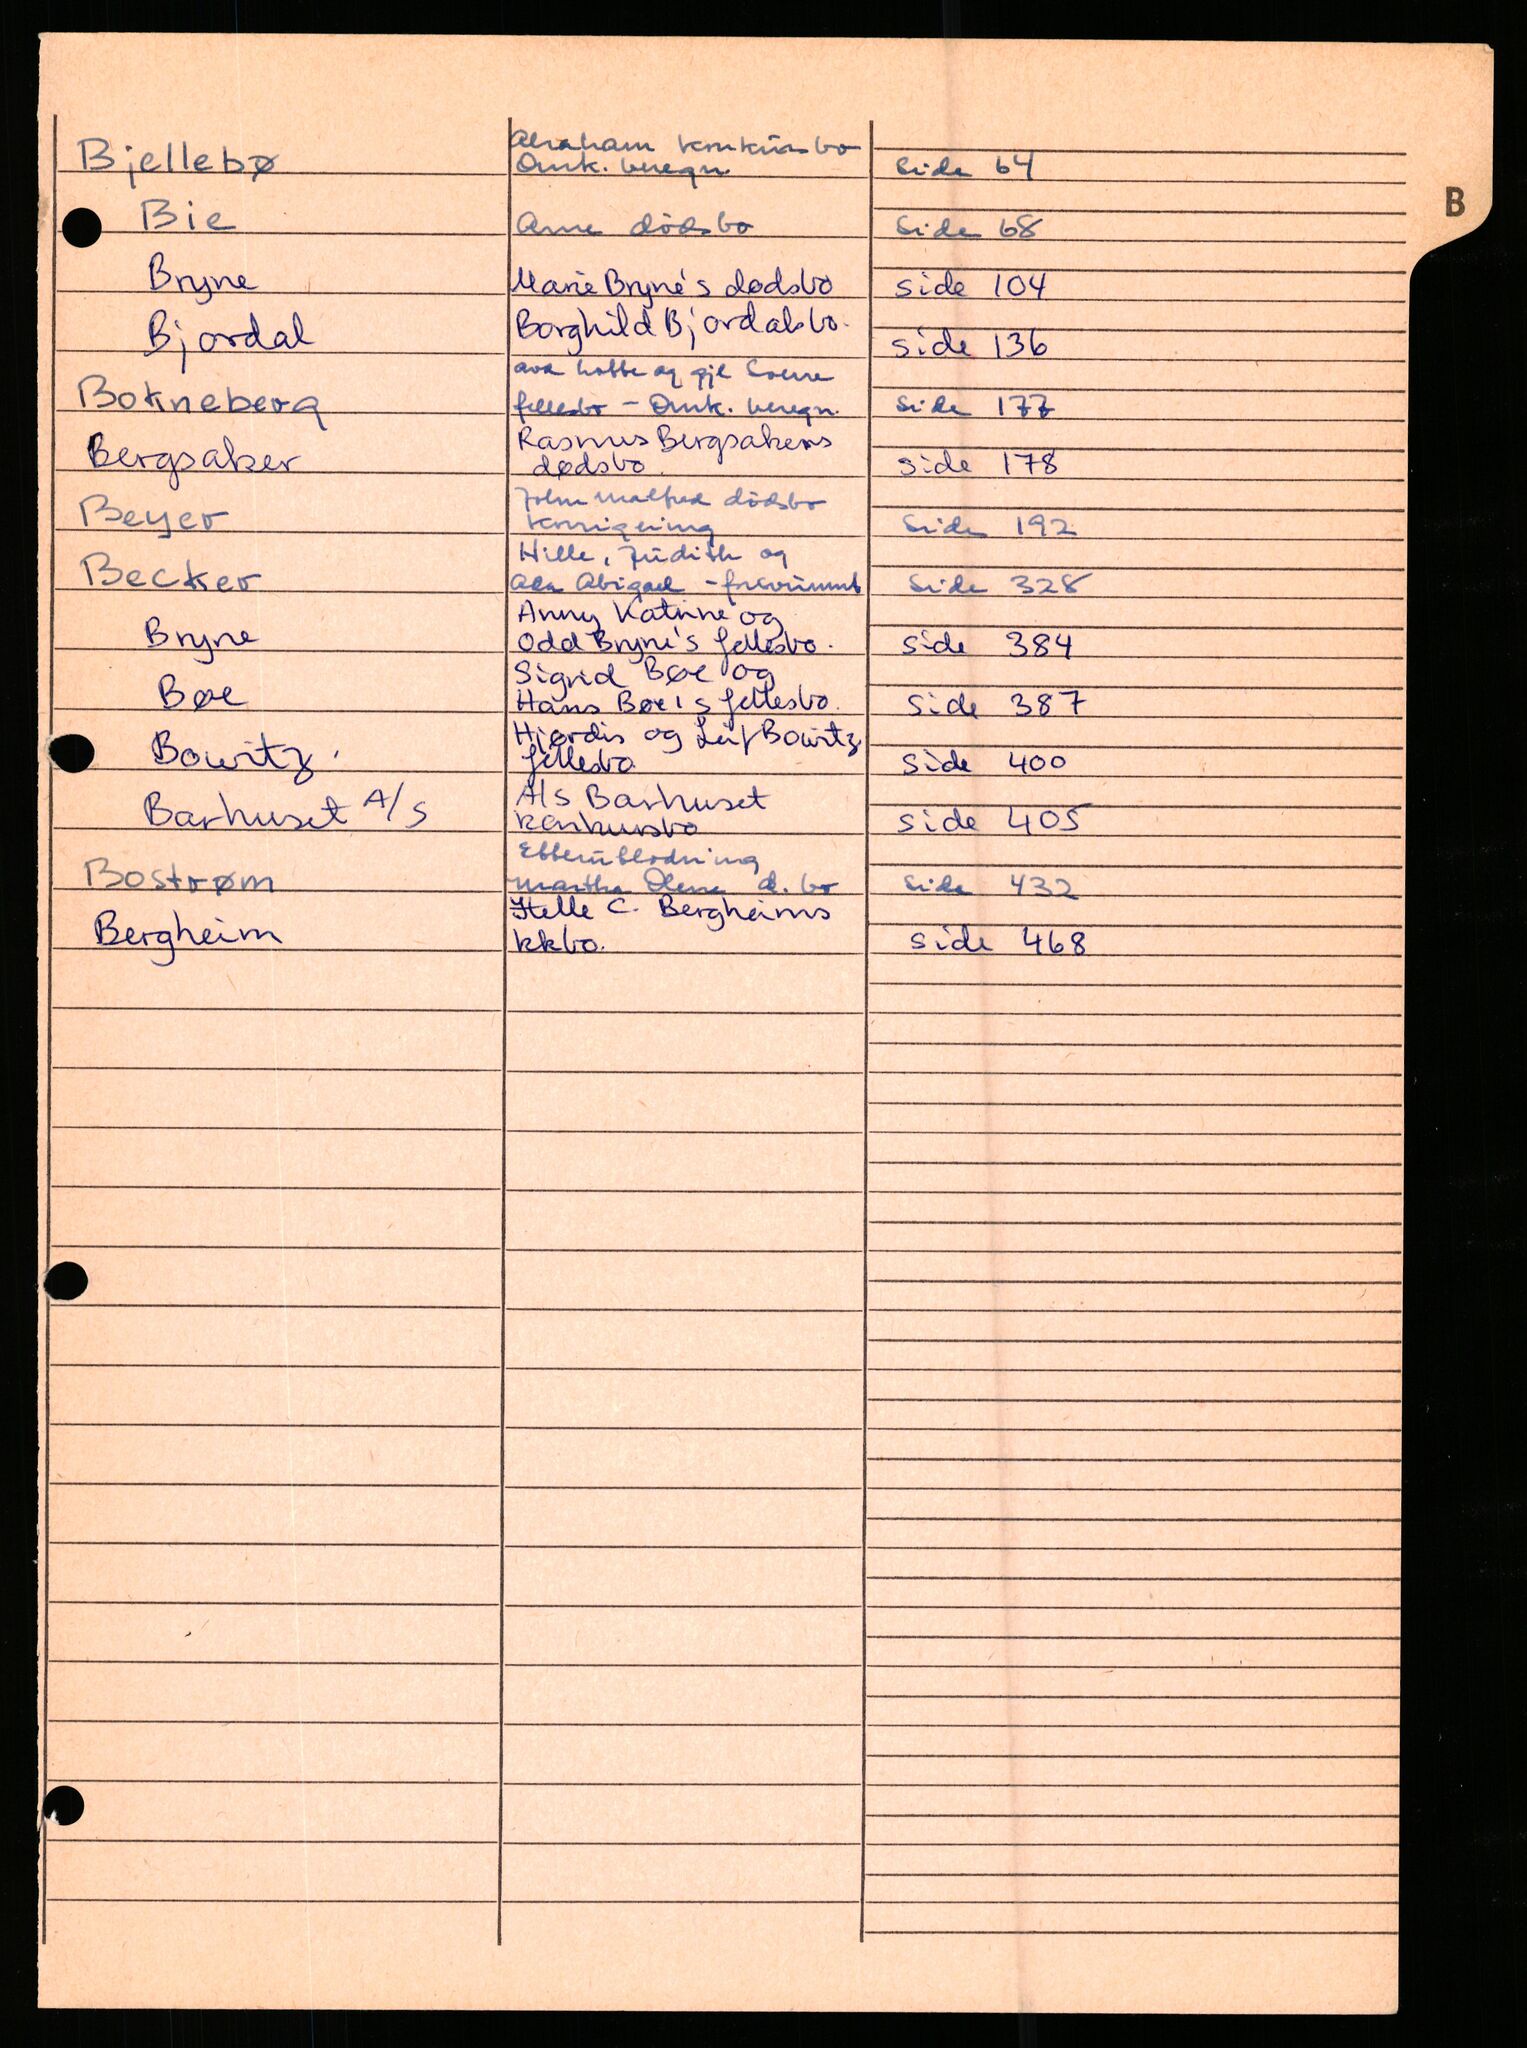 B
Bjellebø
Abraham konkursbo
Omk. beregn.
side 64
Bie
Arne dødsbo
side 68
Bryne
Marie Bryne's dødsbo
side 104
Bjordal
Borghild Bjordalsbo.
side 136
Bokneberg
og gjl
fellesbo - Omk. beregn.
side 177
Bergsaker
Rasmus Bergsakers
dødsbo.
side 178
Beyer
John Malfred dødsbo
korrigering
side 192
Becker
Hille, Judith og
Abigael -
side 328
Bryne
Anny Katrine og
Odd Bryne's fellesbo.
side 384
Bøe
Sigrid Bøe og
Hans Bøe's fellesbo.
side 387
Bowitz.
Hjørdis og Leif Bowitz
fellesbo
side 400
Barhuset A/S
A/S Barhuset
konkursbo
side 405
Bostrøm
Etterutlodning
Martha Olena d. bo
side 432
Bergheim
Helle C. Bergheims
kkbo.
side 468